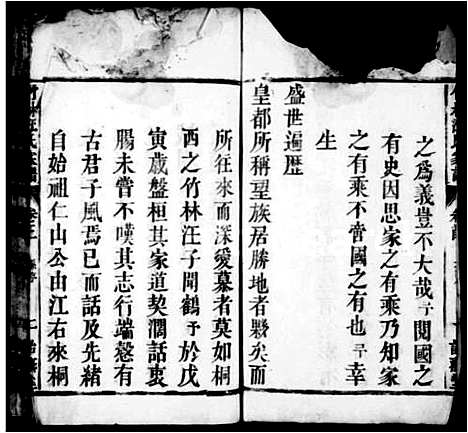 之為義豈不大哉予閱國之
有史因思家之有乘乃知家
之有乘不啻國之有也予幸
生
盛世遍歷
皇都所稱望族居勝地者夥矣而
所往來而深愛慕者莫如桐
西之竹林汪子開鶴予於戊
寅歲盤桓其家道契濶話衷
腸未嘗不嘆其志行端慤有
古君子風焉已而話及先緒
自始祖仁山公由江右來桐